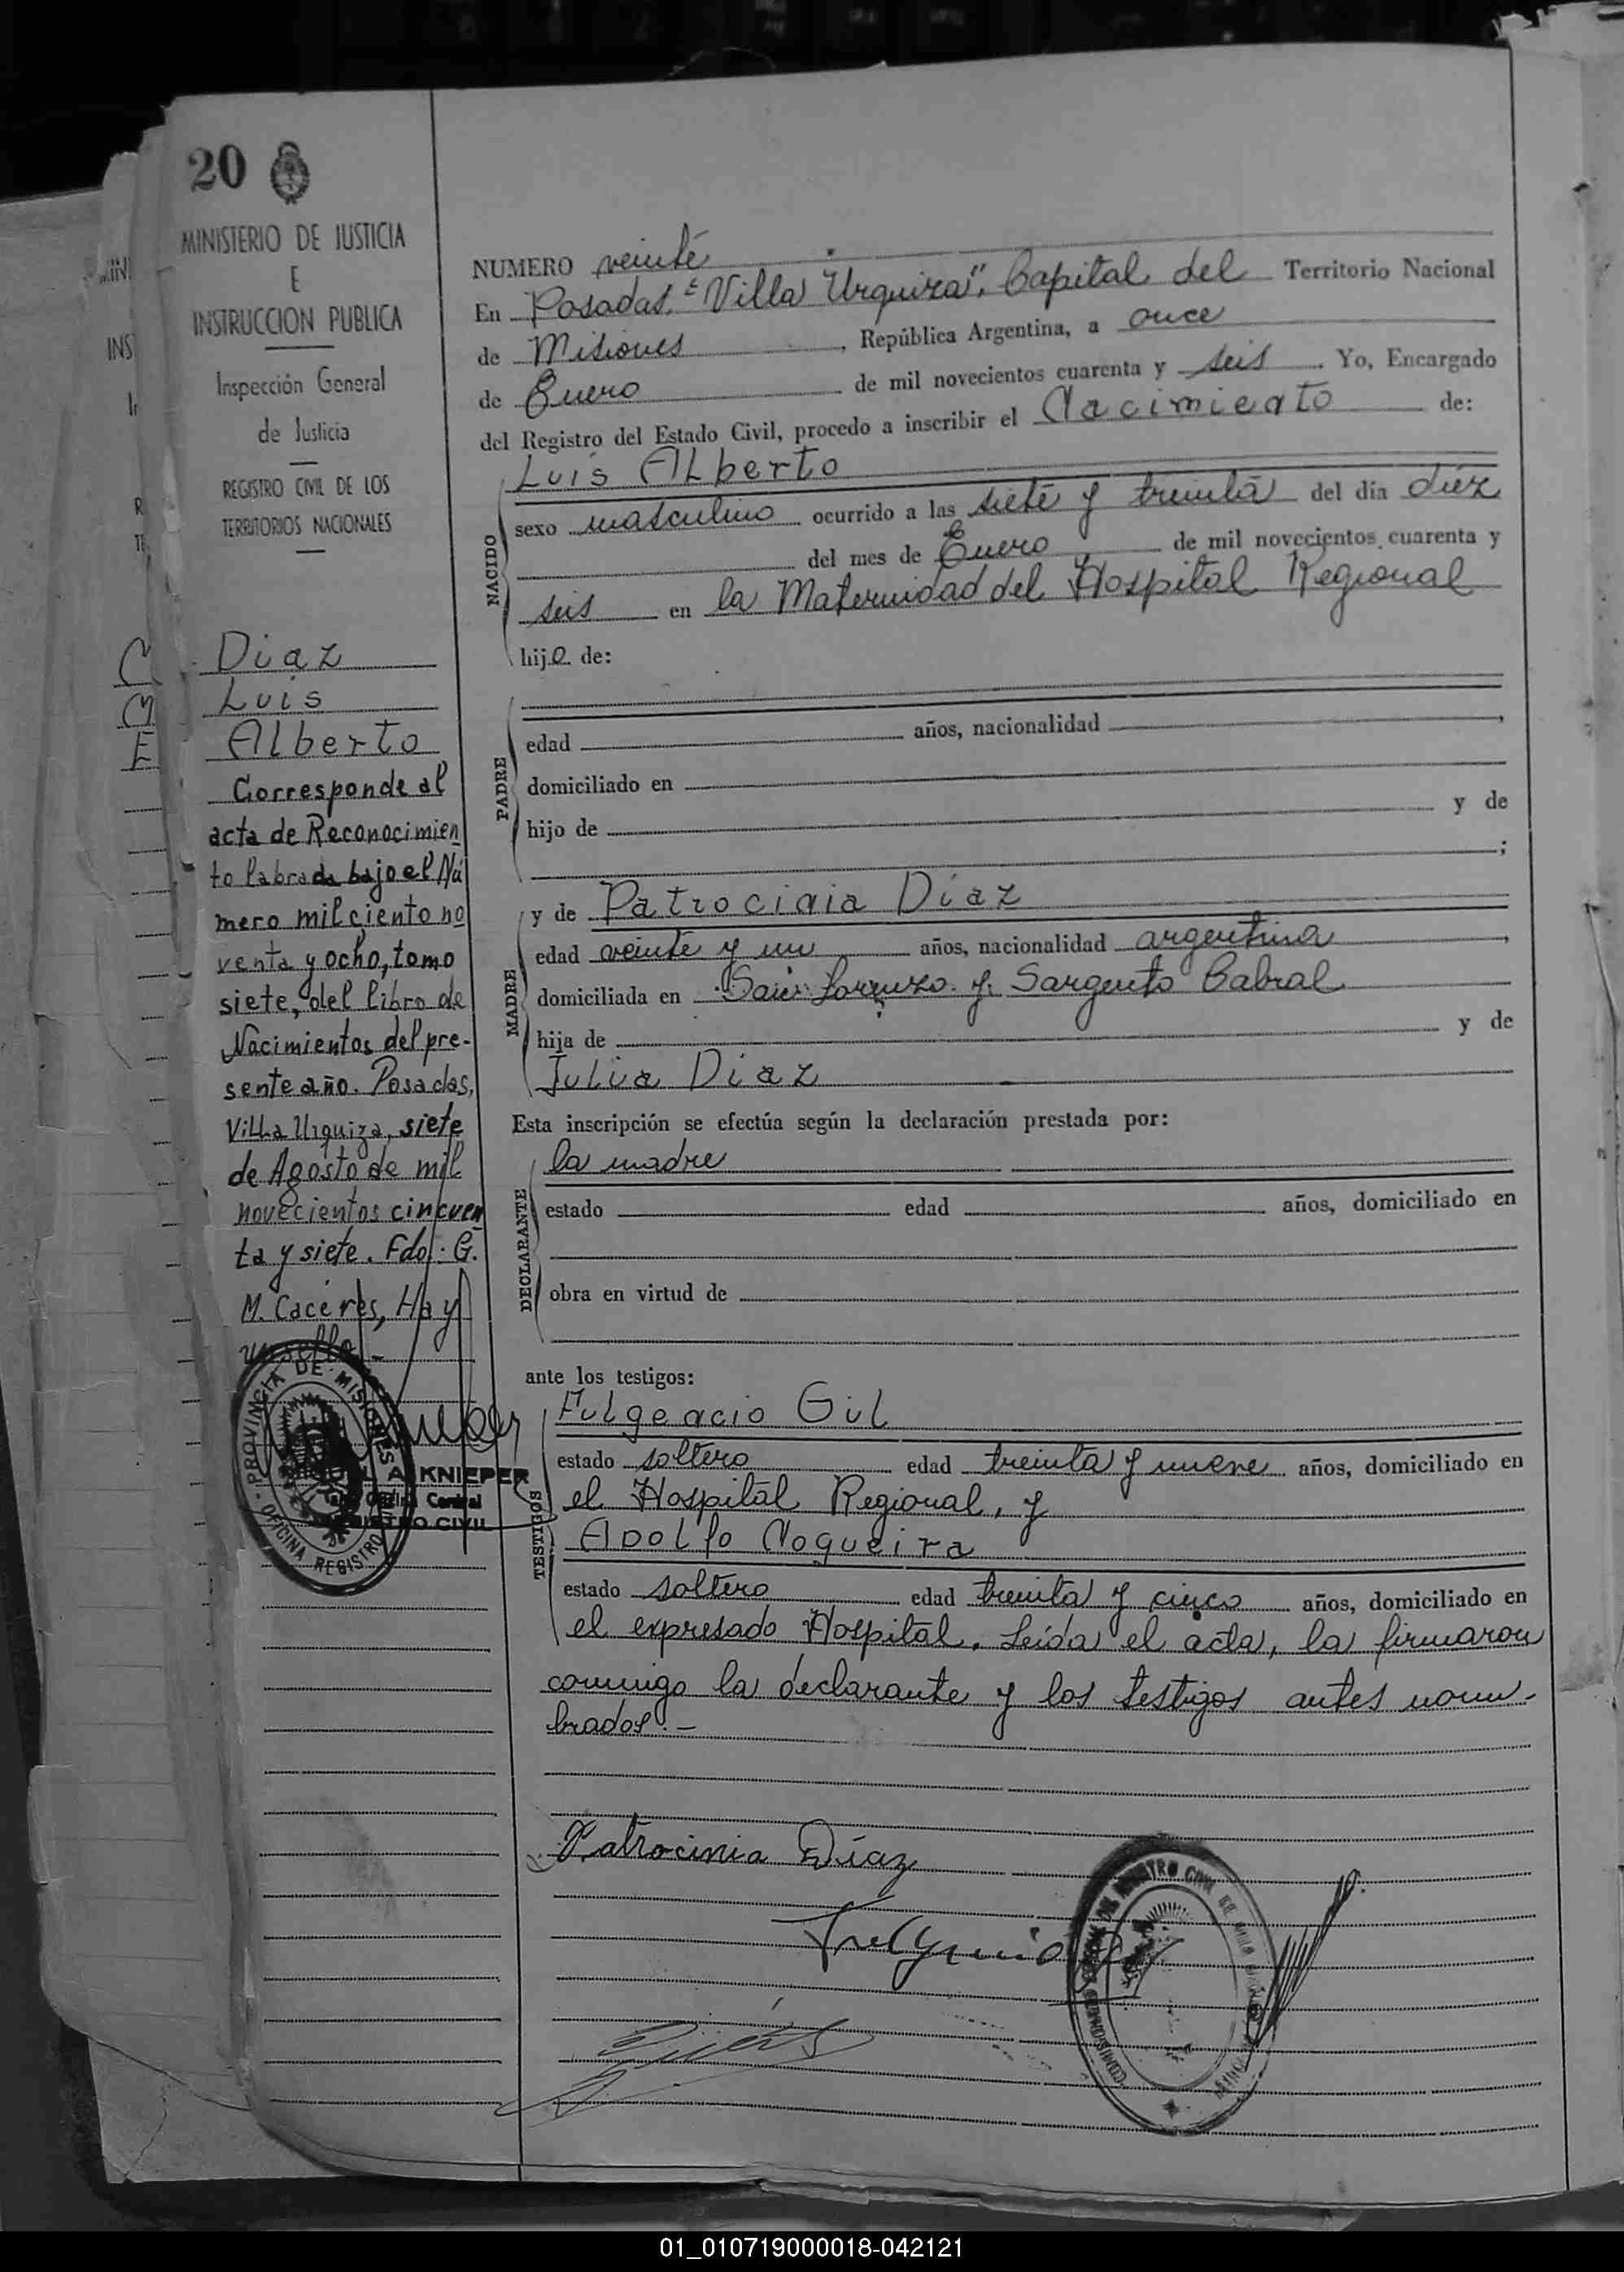 20
MINISTERIO DE JUSTICIA
E
INSTRUCCION PUBLICA
Inspección General
de Justicia
REGISTRO CIVIL DE LOS
TERRITORIOS NACIONALES
Diaz
Luis
Alberto
Corresponde al
acta de Reconocimien
to labrada bajo el Nú
mero mil ciento no
venta y ocho, tomo
siete, del libro de
Nacimientos del pre-
sente año. Posadas,
Villa Urquiza, siete
de Agosto de mil
novecientos cincuen
ta y siete. Fdo: G.
M. Caceres, Hay
un sello. -
PROVINCIA DE MISIONES
OFICINA REGISTRO
A. KNIEPER
Central
REGISTRO CIVIL
NUMERO veinte
En Posadas. "Villa Urquiza", Capital del Territorio Nacional
de Misiones, República Argentina, a once
de Enero de mil novecientos cuarenta y seis. Yo, Encargado
del Registro del Estado Civil, procedo a inscribir el Nacimiento de:
NACIDO
Luis Alberto
sexo masculino ocurrido a las siete y treinta del día diez
del mes de Enero de mil novecientos cuarenta y
seis en la Maternidad del Hospital Regional
hijo de:
PADRE
edad años, nacionalidad ,
domiciliado en
hijo de y de
;
MADRE
y de Patrocinia Diaz
edad veinte y un años, nacionalidad argentina,
domiciliada en San Lorenzo y Sargento Cabral
hija de y de
Julia Diaz
Esta inscripción se efectúa según la declaración prestada por:
DECLARANTE
la madre
estado edad años, domiciliado en
obra en virtud de
ante los testigos:
TESTIGOS
Fulgencio Gil
estado soltero edad treinta y nueve años, domiciliado en
el Hospital Regional, y
Adolfo Nogueira
estado soltero edad treinta y cinco años, domiciliado en
el expresado Hospital. Leída el acta, la firmaron
conmigo la declarante y los testigos antes nom-
brados. -
Patrocinia Díaz
01_010719000018-042121